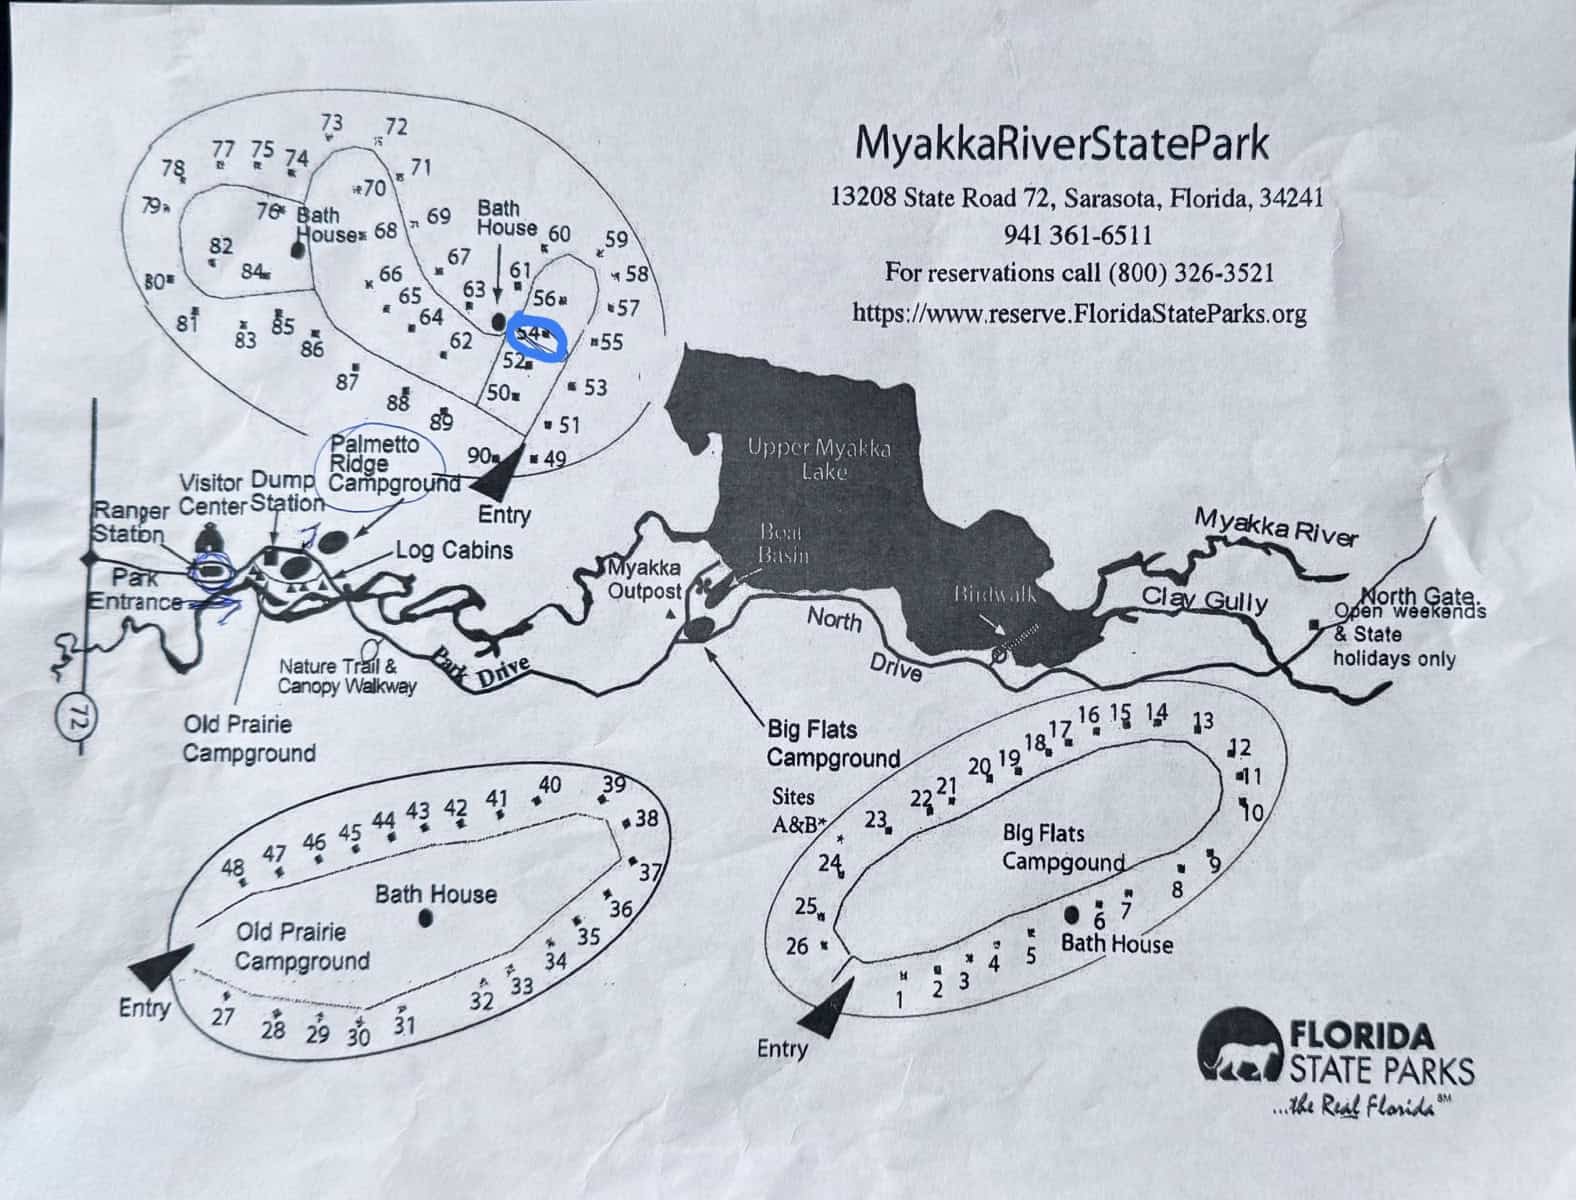 MyakkaRiverStatePark
13208 State Road 72, Sarasota, Florida, 34241
941 361-6511
For reservations call (800) 326-3521
https://www.reserve.FloridaStateParks.org
73
72
77
75
74
71
78
70
79
76
Bath
House
68
69
Bath
House
60
59
82
84
67
61
58
80
66
63
56
57
65
64
81
83
85
86
62
54
55
52
87
50
53
88
89
51
90
49
Entry
Palmetto
Ridge
Campground
Visitor
Center
Dump
Station
Ranger
Station
Log Cabins
Park
Entrance
72
Nature Trail &
Canopy Walkway
Park Drive
Old Prairie
Campground
Upper Myakka
Lake
Boat
Basin
Myakka
Outpost
Birdwalk
North
Drive
Myakka River
Clay Gully
North Gate.
Open weekends
& State
holidays only
Big Flats
Campground
Sites
A&B*
40
39
41
42
43
44
45
46
47
48
38
37
36
35
34
33
32
31
30
29
28
27
Bath House
Old Prairie
Campground
Entry
16
15
14
13
17
18
19
20
21
22
23
24
25
26
12
11
10
9
8
7
6
5
4
3
2
1
Big Flats
Campgound
Bath House
Entry
FLORIDA
STATE PARKS
...the Real Florida SM